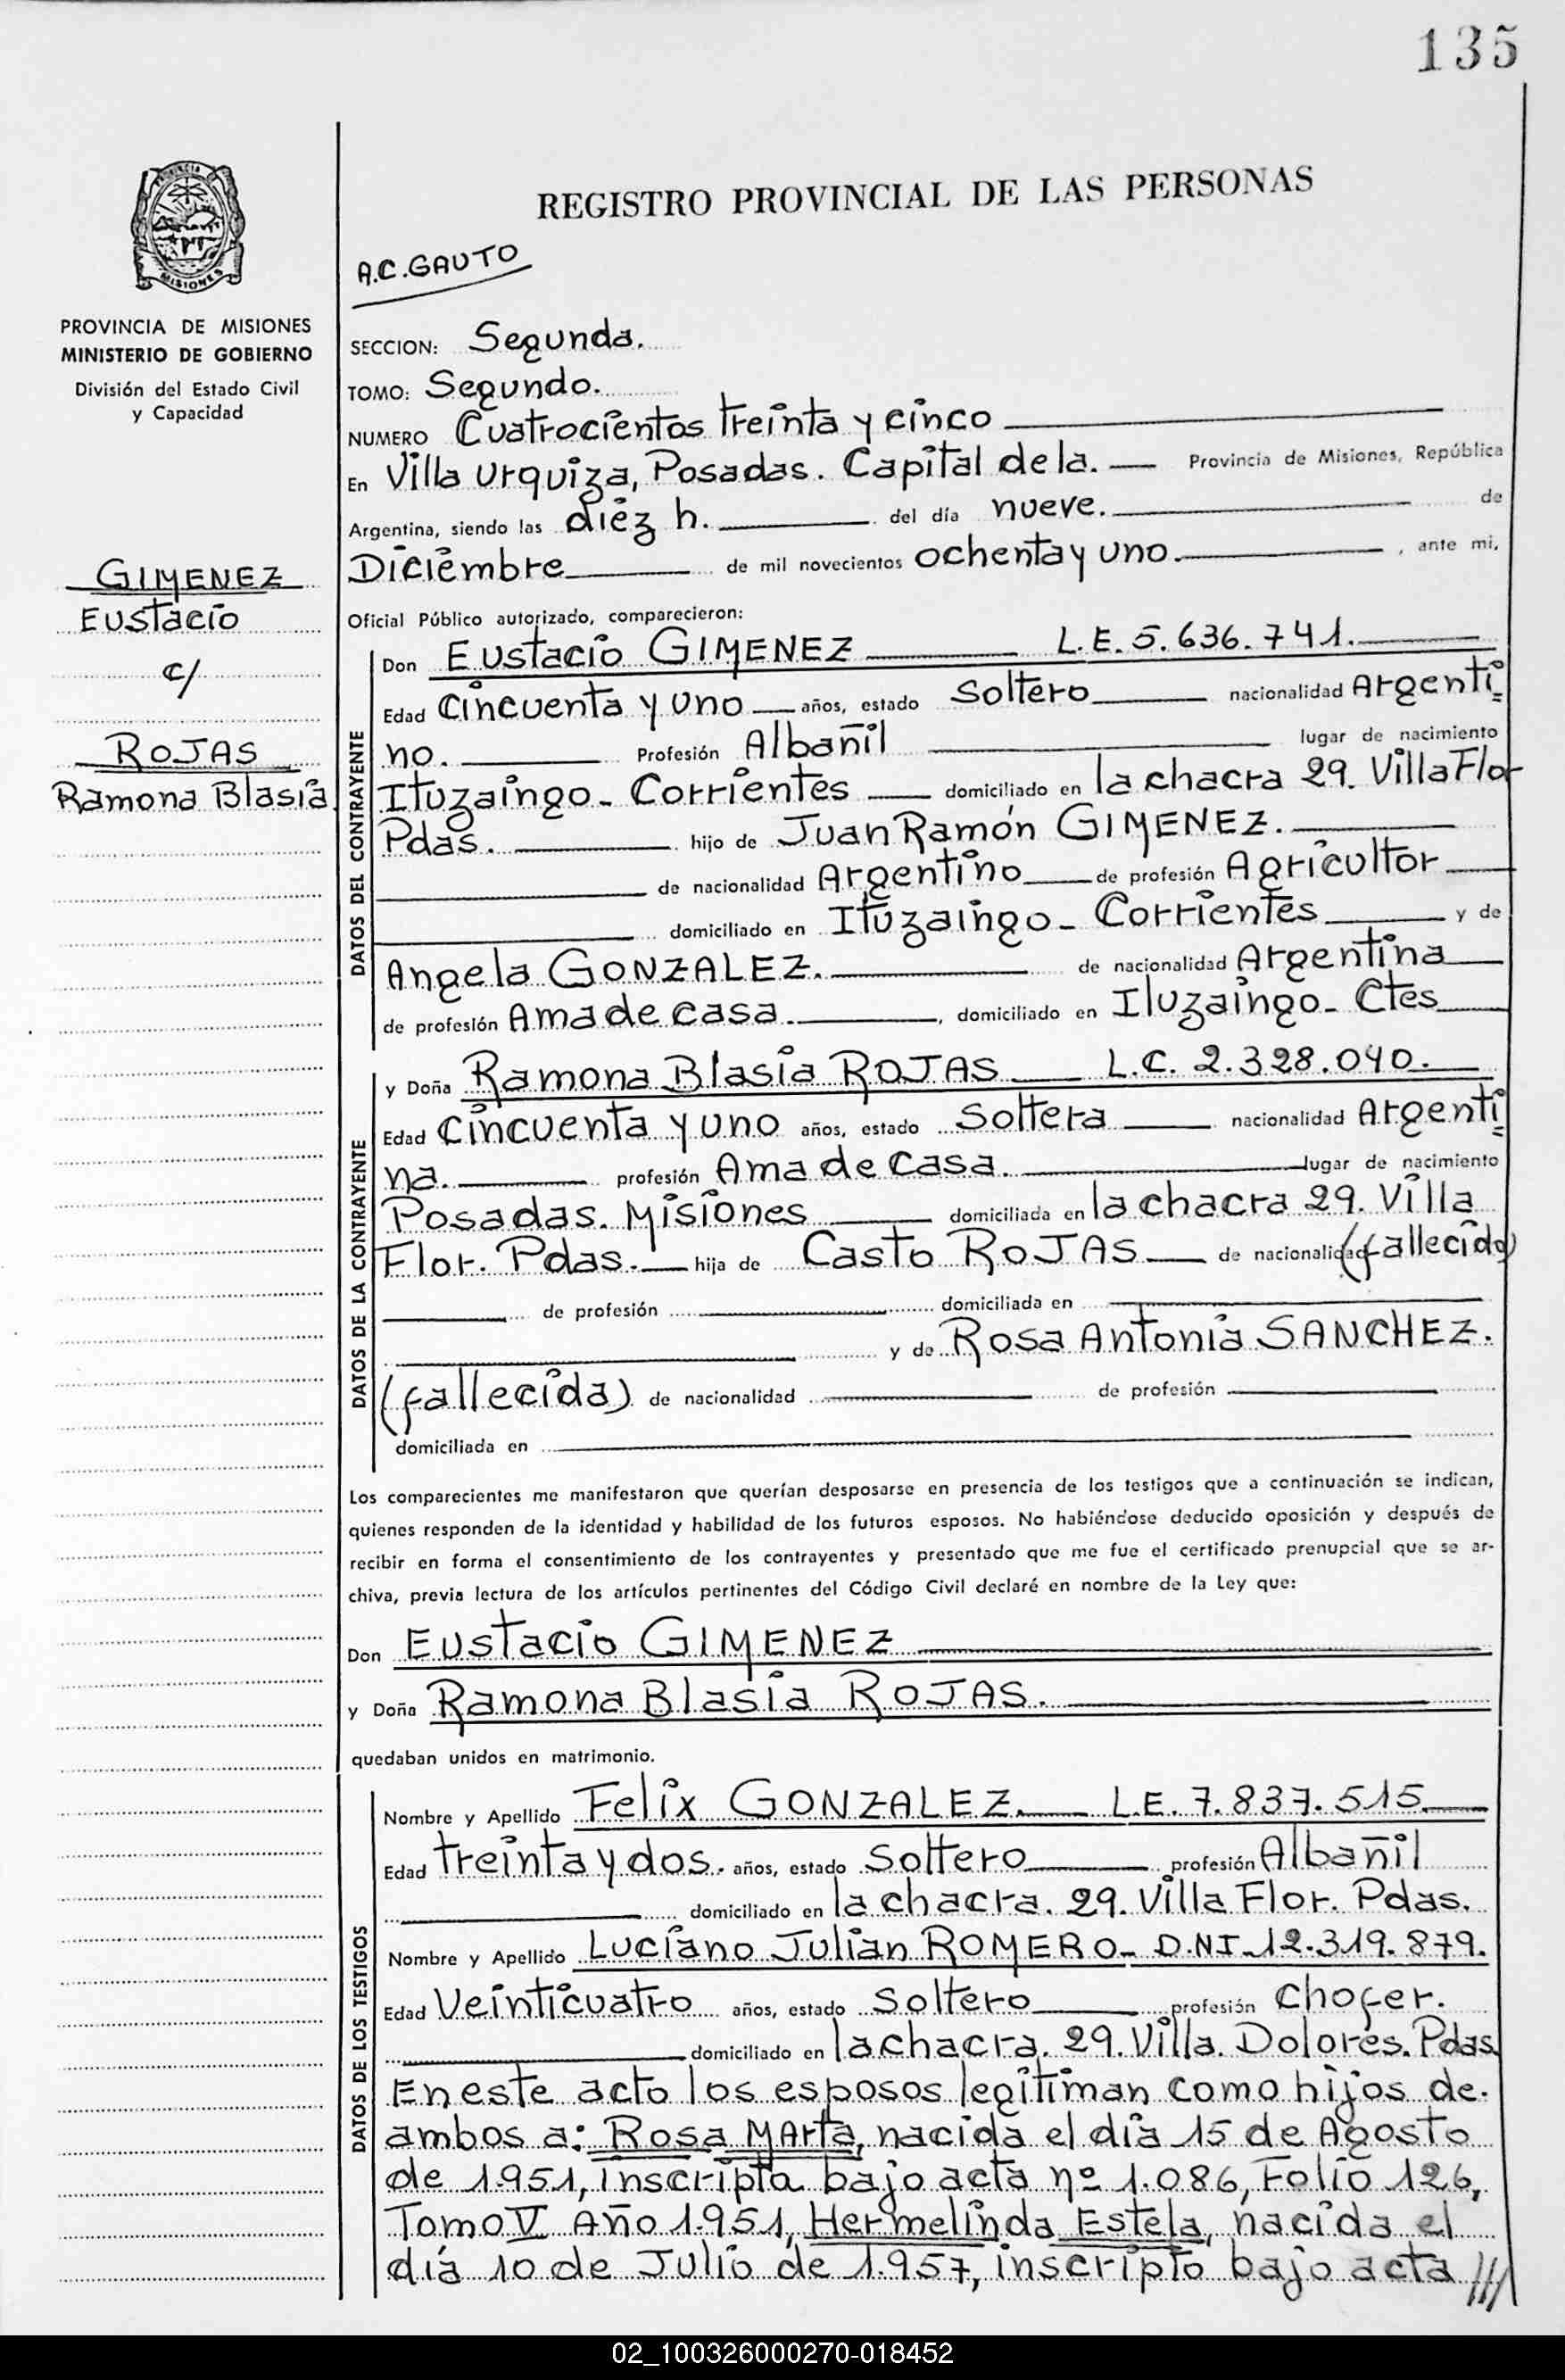 135
REGISTRO PROVINCIAL DE LAS PERSONAS
A.C. GAUTO
PROVINCIA
MISIONES
PROVINCIA DE MISIONES
MINISTERIO DE GOBIERNO
División del Estado Civil
y Capacidad
GIMENEZ
Eustacio
c/
ROJAS
Ramona Blasia
SECCION: Segunda.
TOMO: Segundo.
NUMERO Cuatrocientos treinta y cinco
En Villa Urquiza, Posadas. Capital de la. Provincia de Misiones, República
Argentina, siendo las diez h. del día nueve. de
Diciembre de mil novecientos ochenta y uno. , ante mi,
Oficial Público autorizado, comparecieron:
DATOS DEL CONTRAYENTE
Don Eustacio GIMENEZ L.E. 5.636.741.
Edad Cincuenta y uno años, estado Soltero nacionalidad Argenti
no. Profesión Albañil lugar de nacimiento
Ituzaingo - Corrientes domiciliado en la chacra 29. Villa Flor
Pdas. hijo de Juan Ramón GIMENEZ.
de nacionalidad Argentino de profesión Agricultor
domiciliado en Ituzaingo - Corrientes y de
Angela GONZALEZ. de nacionalidad Argentina
de profesión Ama de casa. , domiciliado en Iluzaingo - Ctes
DATOS DE LA CONTRAYENTE
y Doña Ramona Blasia ROJAS L.C. 2.328.040.
Edad Cincuenta y uno años, estado Soltera nacionalidad Argenti
na. profesión Ama de Casa. lugar de nacimiento
Posadas. Misiones domiciliada en la chacra 29. Villa
Flor. Pdas. hija de Casto ROJAS de nacionalidad (fallecido)
de profesión domiciliada en
y de Rosa Antonia SANCHEZ.
(fallecida) de nacionalidad de profesión
domiciliada en
Los comparecientes me manifestaron que querían desposarse en presencia de los testigos que a continuación se indican,
quienes responden de la identidad y habilidad de los futuros esposos. No habiéndose deducido oposición y después de
recibir en forma el consentimiento de los contrayentes y presentado que me fue el certificado prenupcial que se ar-
chiva, previa lectura de los artículos pertinentes del Código Civil declaré en nombre de la Ley que:
Don Eustacio GIMENEZ
y Doña Ramona Blasia ROJAS.
quedaban unidos en matrimonio.
DATOS DE LOS TESTIGOS
Nombre y Apellido Felix GONZALEZ. L.E. 7.837.515.
Edad treinta y dos. años, estado Soltero profesión Albañil
domiciliado en la chacra. 29. Villa Flor. Pdas.
Nombre y Apellido Luciano Julian ROMERO - D.N.I - 12.319.879.
Edad Veinticuatro años, estado Soltero profesión Chofer.
domiciliado en la chacra. 29. Villa. Dolores. Pdas.
En este acto los esposos legitiman como hijos de.
ambos a: Rosa Marta, nacida el día 15 de Agosto
de 1.951, inscripta bajo acta nº 1.086, Folio 126,
Tomo V Año 1.951, Hermelinda Estela, nacida el
día 10 de Julio de 1.957, inscripto bajo acta ///
02_100326000270-018452